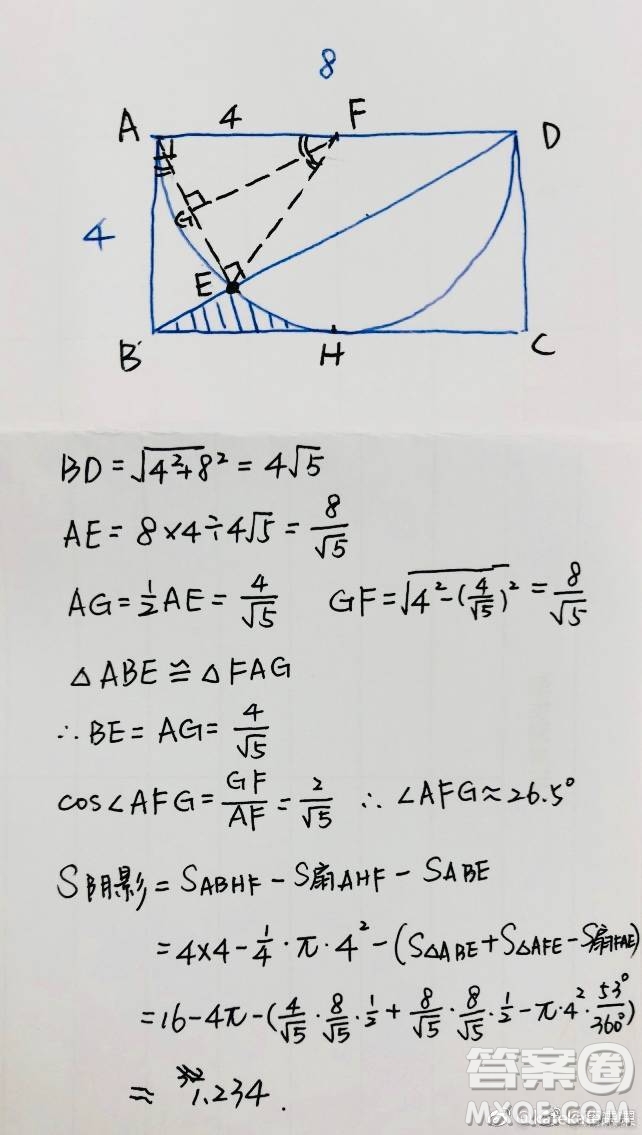 8
A 4 F D
4
G
E
B H C
BD = √(4²+8²) = 4√5
AE = 8×4÷4√5 = 8/√5
AG = 1/2 AE = 4/√5 GF = √(4²-(4/√5)²) = 8/√5
△ABE ≌ △FAG
∴ BE = AG = 4/√5
cos∠AFG = GF/AF = 2/√5 ∴ ∠AFG ≈ 26.5°
S阴影 = SABHF - S扇AHF - SABE
= 4×4 - 1/4·π·4² - (S△ABE + S△AFE - S扇FAE)
= 16 - 4π - (4/√5·8/√5·1/2 + 8/√5·8/√5·1/2 - π·4²·53°/360°)
≈ 1.234.
答案圈
MXQE.COM